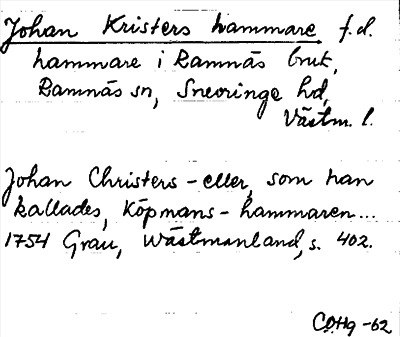 Johan Kristers hammare f.d.
hammare i Ramnäs bruk,
Ramnäs sn, Snevringe hd,
Västm. l.
Johan Christers – eller, som han
kallades, Köpmans – hammaren...
1754 Grau, Wästmanland, s. 402.
CDHg -62